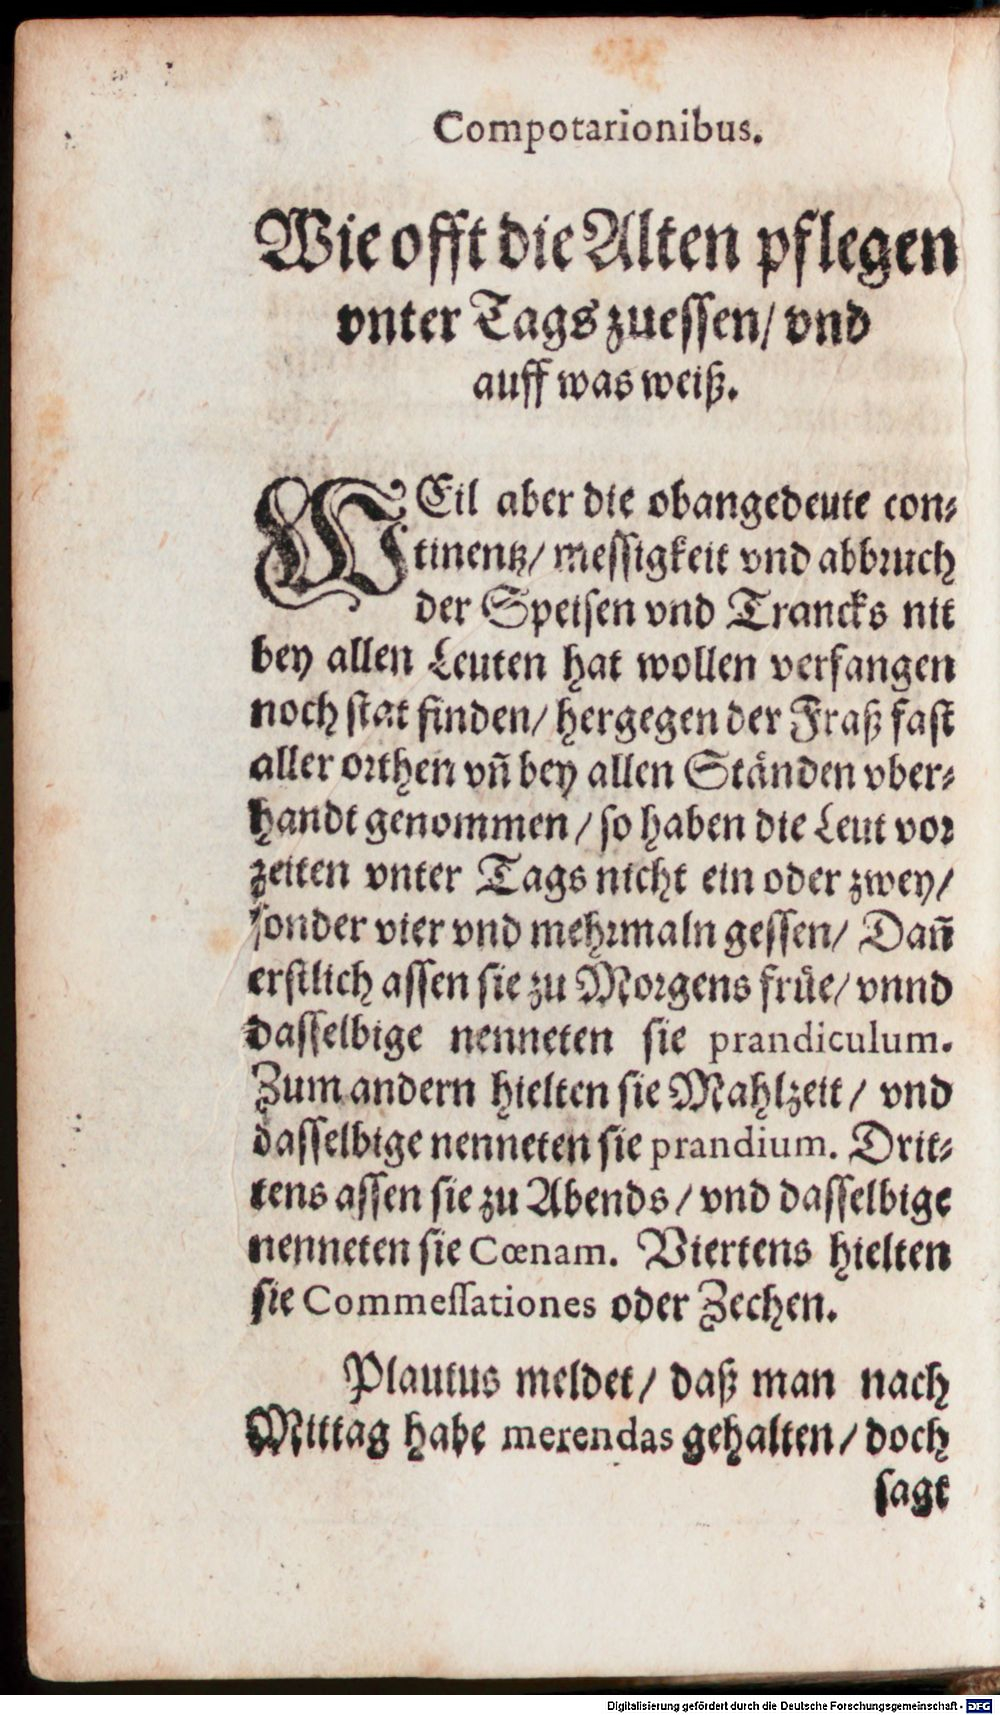 Compotarionibus.
Wie offt die Alten pflegen
vnter Tags zuessen/ vnd
auff was weiß.
WEil aber die obangedeute con⸗
tinentz/ messigkeit vnd abbruch
der Speisen vnd Trancks nit
bey allen Leuten hat wollen verfangen
noch stat finden/ hergegen der Fraß fast
aller orthen vñ bey allen Ständen vber⸗
handt genommen / so haben die Leut vor
zeiten vnter Tags nicht ein oder zwey/
sonder vier vnd mehrmaln gessen/ Dañ
erstlich assen sie zu Morgens früe/ vnnd
dasselbige nenneten sie prandiculum.
Zum andern hielten sie Mahlzeit / vnd
dasselbige nenneten sie prandium. Drit⸗
tens assen sie zu Abends / vnd dasselbige
nenneten sie Cœnam. Viertens hielten
sie Commessationes oder Zechen.
Plautus meldet/ daß man nach
Mittag habe merendas gehalten / doch
sagt
Digitalisierung gefördert durch die Deutsche Forschungsgemeinschaft - DFG